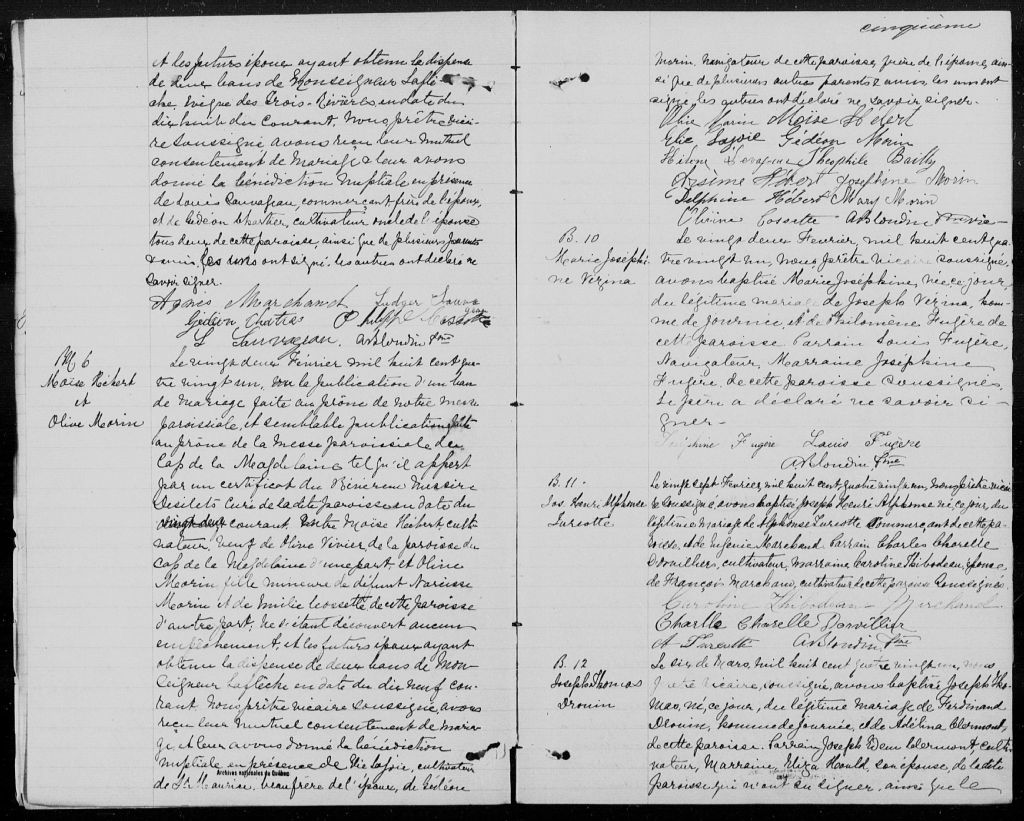 et les futurs époux ayant obtenu la dispense
de deux bans de Monseigneur Laflè-
che, Evêque des Trois-Rivières en date du
dix huit du courant, Nous prêtre vicai-
re soussigné avons reçu leur mutuel
consentement de mariage & leur avons
donné la bénédiction nuptiale en présence
de Louis Sauvageau, commerçant frère de l'époux,
et de Gédéon Chartier, cultivateur, oncle de l'épouse
tous deux de cette paroisse, ainsi que de plusieurs parents
& amis, les uns ont signé, les autres ont déclaré ne
savoir signer.
Agnès Marchand Ludger Sauva
geau
Gédéon Philippe Cossette
L Sauvageau. A Blondin Ptre
M 6
Moïse Hébert
et
Olive Morin
Le vingt deux Février mil huit cent qua-
tre vingt un, vu la publication d'un ban
de mariage faite au prône de notre messe
paroissiale, et semblable publication faite
au prône de la Messe paroissiale du
Cap de la Magdelaine tel qu'il appert
par un certificat du Révérend Messire
Desilets Curé de la dite paroisse en date du
vingt deux courant, entre Moïse Hébert, culti-
vateur, veuf de Olive Vivier de la paroisse du
cap de la Magdelaine d'une part, et Olive
Morin fille mineure de défunt Narcisse
Morin et de Emilie Cossette de cette paroisse
d'autre part, ne s'étant découvert aucun
empêchement, et les futurs époux ayant
obtenu la dispense de deux bans de Mon-
seigneur Laflèche en date du dix neuf cou-
rant Nous prêtre vicaire soussigné avons
reçu leur mutuel consentement de maria-
ge et leur avons donné la bénédiction
nuptiale en présence de Elie Lajoie, cultivateur
Archives nationales du Québec
de St. Maurice, beau frère de l'époux, de Gédéon
cinquième
Morin, navigateur de cette paroisse, frère de l'épouse, ain-
si que de plusieurs autres parents & amis les uns ont
signé, les autres ont déclaré ne savoir signer.
Olive Morin Moïse Hébert
Elie Lajoie Gédéon Morin
Hélène Théophile Bailly
Arsème Hébert Joséphine Morin
Delphine Hébert Mary Morin
Cossette A Blondin Ptre vic
B. 10
Marie Joséphi-
ne Vézina
Le vingt deux Fevrier, mil huit cent qua-
tre vingt un, nous prêtre vicaire soussigné,
avons baptisé Marie Joséphine, née ce jour,
du légitime mariage de Joseph Vézina, hom-
me de journée, et de Philomène Fugère de
cette paroisse Parrain Louis Fugère,
Navigateur, Marraine Joséphine
Fugère, de cette paroisse soussignés.
Le père a déclaré ne savoir si-
gner.
Joséphine Fugère Louis Fugère
A Blondin Ptre
B. 11
Jos. Henri Alphonse
Turcotte
Le vingt sept Fevrier, mil huit cent quatre vingt un, nous prêtre vicai-
re soussigné, avons baptisé Joseph Henri Alphonse né ce jour, du
légitime mariage de Alphonse Turcotte Commerçant de cette pa-
roisse, et de Eugénie Marchand Parrain Charles Charelle
Dervilliers, cultivateur, marraine Caroline Thibodeau, épouse
de François Marchand, cultivateur de cette paroisse Soussignés
Caroline Thibodeau Marchand
Charlle Charelle Dervillier
A Turcotte A Blondin Ptre
B. 12
Joseph Thomas
Drouin
Le six de Mars, mil huit cent quatre vingt un, nous
prêtre vicaire, soussigné, avons baptisé Joseph Tho-
mas, né ce jour, du légitime mariage de Ferdinand
Drouin, homme de journée, et de Adélina Clermont,
de cette paroisse. Parrain Joseph Clermont, culti-
vateur, Marraine, Eliza Hould, son épouse, de la dite
paroisse qui n'ont su signer, ainsi que le